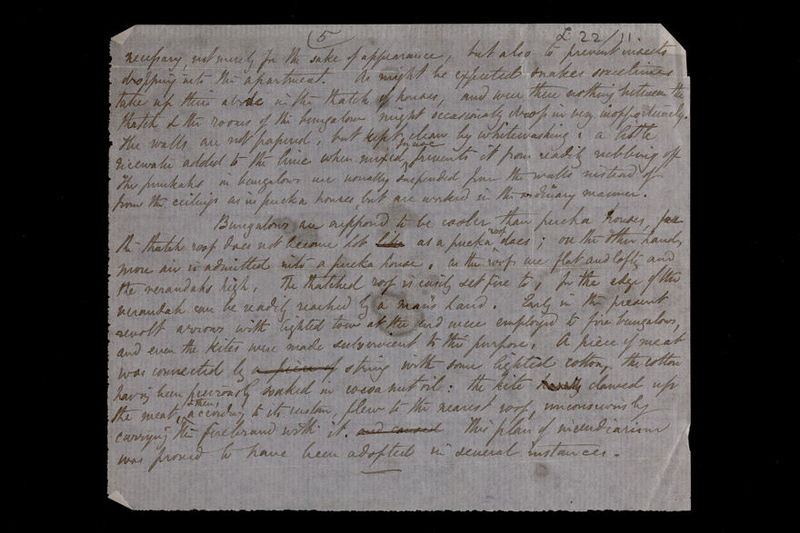 (5 L 22/11.
necessary, not merely for the sake of appearance, but also to prevent insects
dropping into the apartment. As might be expected snakes sometimes
take up their abode in the thatch of houses, and were there nothing between the
thatch & the rooms of the bungalow might occasionally drop in very inopportunely.
The walls are not papered, but kept clean by whitewashing: a little
ricewater added to the lime when mixed, prevents it from readily rubbing off
The punkahs in bungalows are usually suspended from the walls instead of
from the ceilings as in pucka houses, but are worked in the ordinary manner.
Bungalows are supposed to be cooler than pucka houses, for
the thatched roof does not become hot like as a pucka roof does; on the other hand,
more air is admitted into a pucka house, as the roofs are flat and lofty and
the verandahs high. The thatched roof is easily set fire to, for the edge of the
verandah can be readily reached by a man's hand. Early in the present
revolt arrows with lighted tow at the end were employed to fire bungalows,
and even the kites were made subservient to the purpose. A piece of meat
was connected by a piece of string with some lighted cotton, the cotton
having been previously soaked in cocoa nut oil: the kite clawed up
the meat, & then, according to its custom, flew to the nearest roof, unconsciously
carrying the firebrand with it. and caused This plan of incendiarism
was proved to have been adopted in several instances.